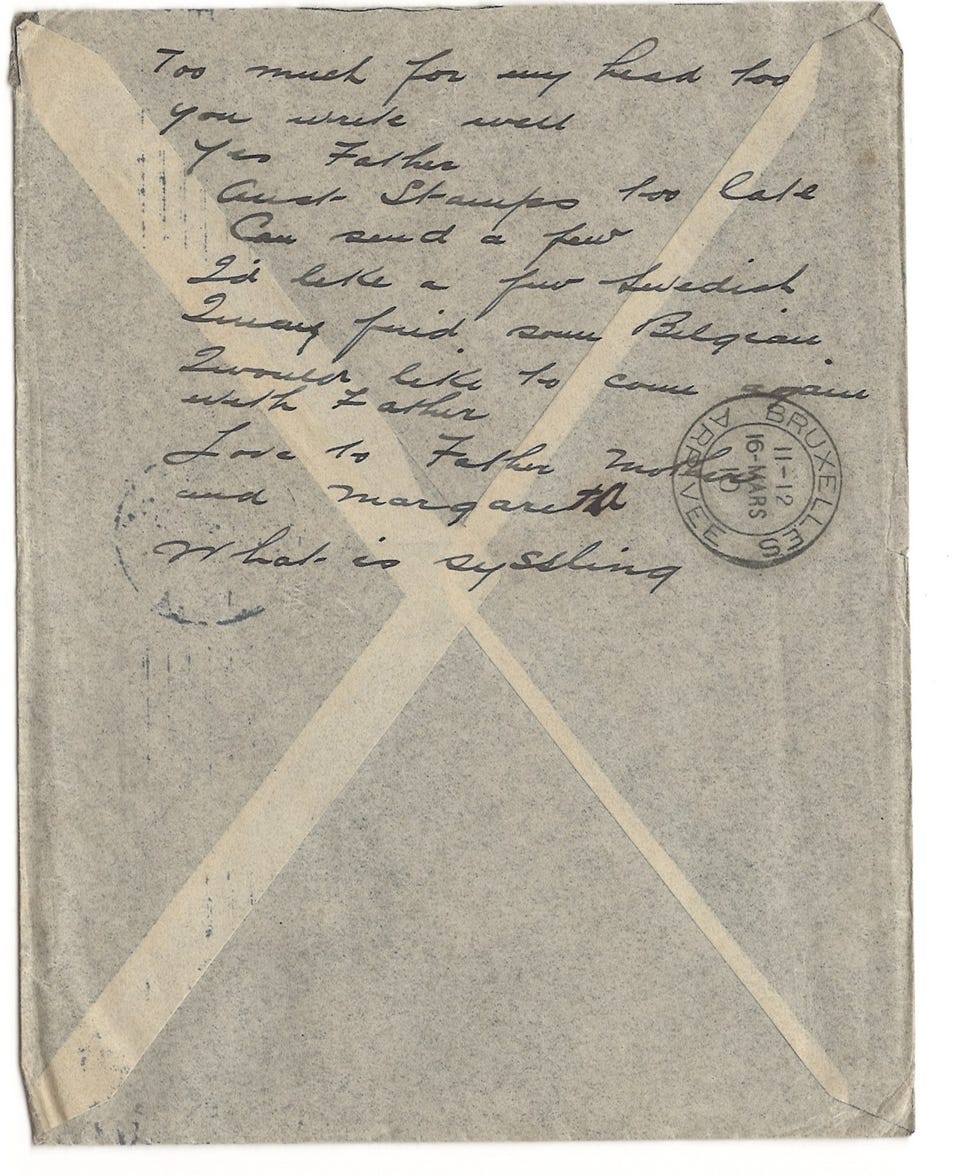 Too much for my head too
you write well
Yes Father
Aust Stamps too late
Can send a few
I'd like a few Swedish
I may find some Belgian
I would like to come again
with Father
Love to Father Mother
and Margareta
What is syssling
BRUXELLES
11-12
16-MARS
10
ARRIVEE